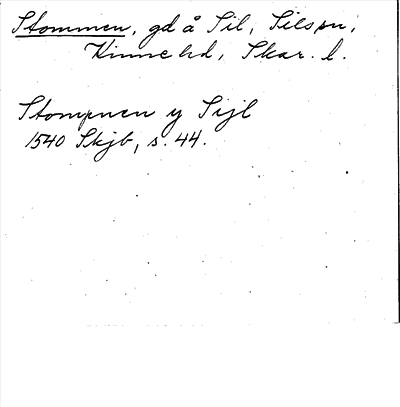 Stommen, gd å Sil, Silspn,
Kinne hd, Skar. l.
Stompnen y Sijl
1540 Skjb, s. 44.